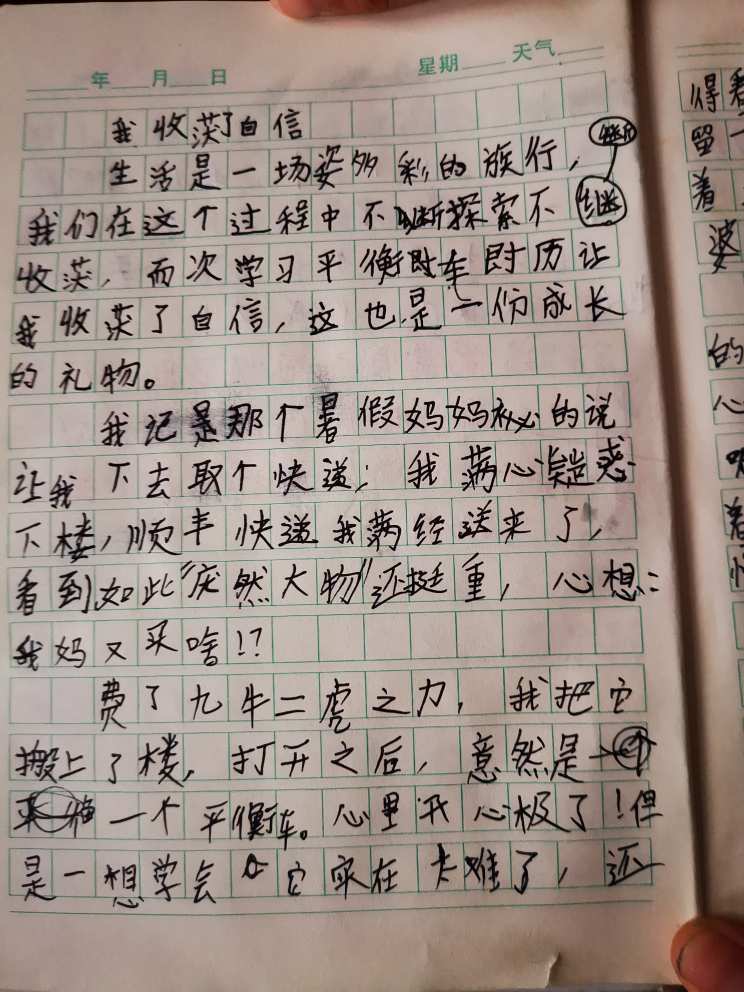 年 月 日 星期 天气
我收获了自信
生活是一场姿多彩的旅行，
我们在这个过程中不断探索不继
收获，而次学习平衡车时历让
我收获了自信，这也是一份成长
的礼物。
我记是那个暑假妈妈秘的说
让我下去取个快递；我满心疑惑
下楼，顺丰快递我满经送来了，
看到如此"庞然大物"还挺重，心想：
我妈又买啥!?
费了九牛二虎之力，我把它
搬上了楼，打开之后，意然是
一个平衡车。心里开心极了！但
是一想学会它实在太难了，还
得看
留一
着
婆
的
心